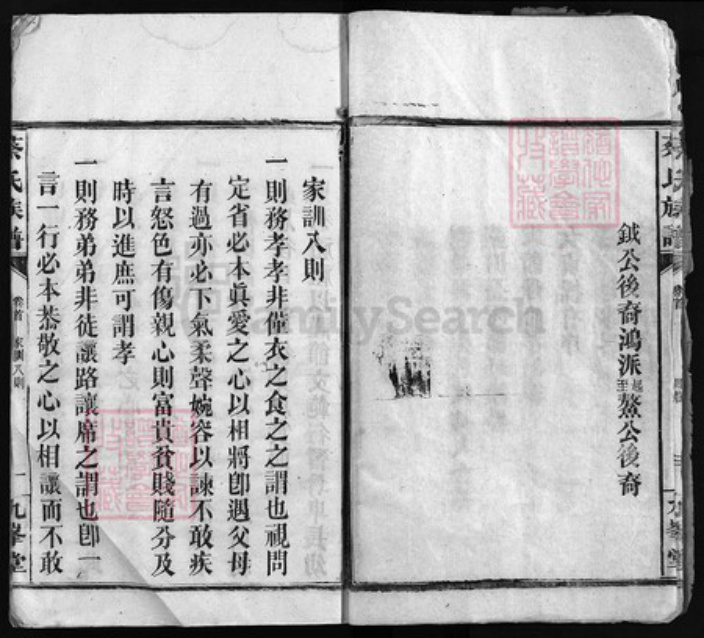 蔡氏族譜
卷首
九峯堂
鉞公後裔鴻派起至鰲公後裔
家訓八則
一則務孝孝非僅衣之食之之謂也視問
定省必本眞愛之心以相將卽遇父母
有過亦必下氣柔聲婉容以諫不敢疾
言怒色有傷親心則富貴貧賤隨分及
時以進庶可謂孝
一則務弟弟非徒讓路讓席之謂也卽一
言一行必本恭敬之心以相讓而不敢
蔡氏族譜
卷首
家訓八則
一
九峯堂
FamilySearch